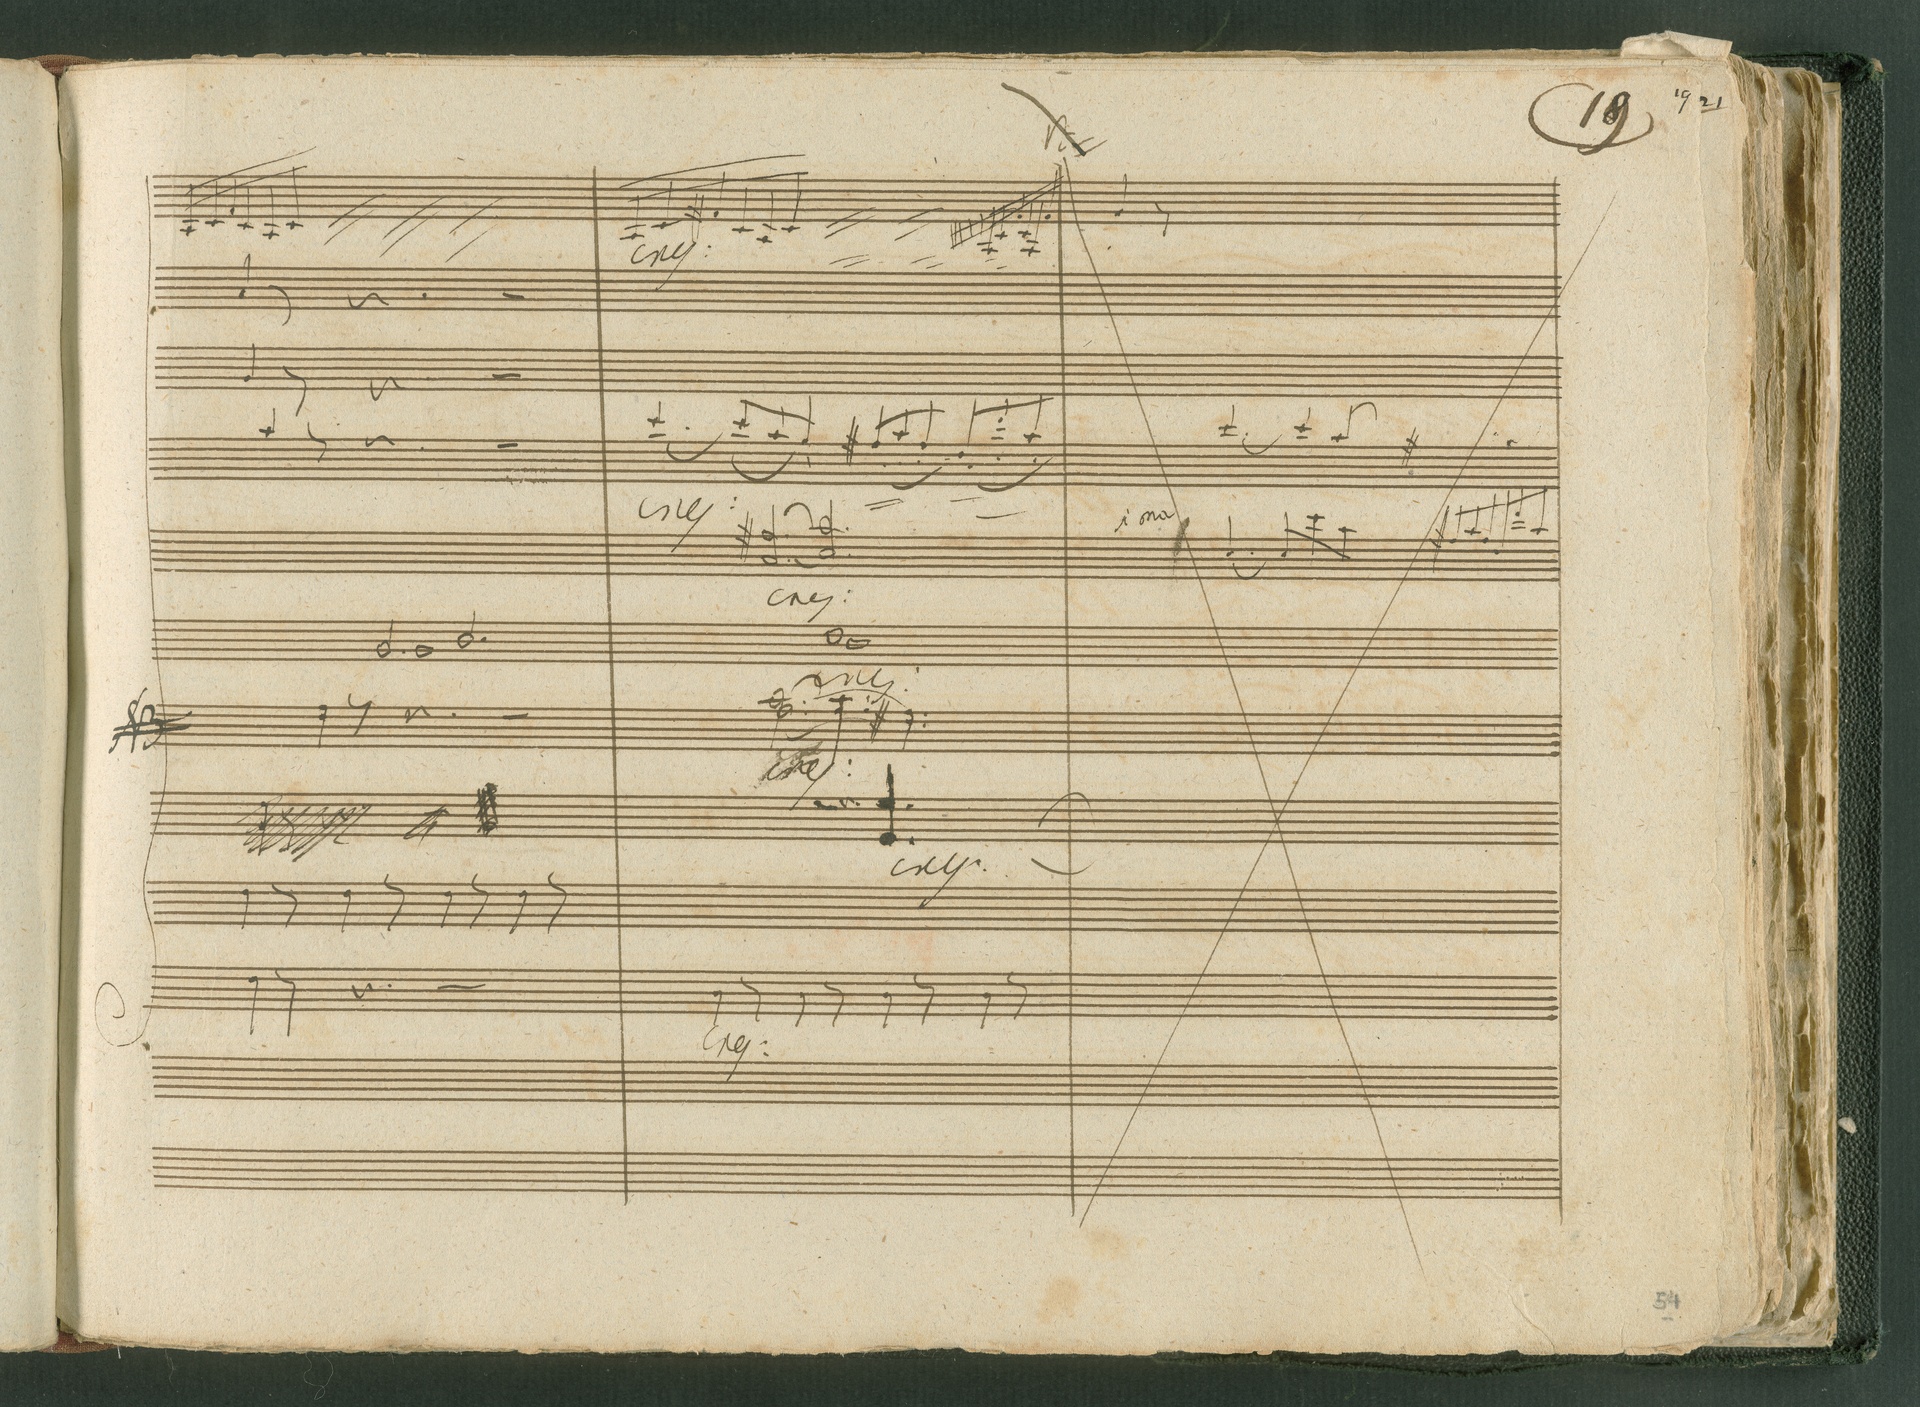 19
19 21
cresc:
cresc:
i mo
cresc:
cresc:
cresc:
cresc:
cresc:
54